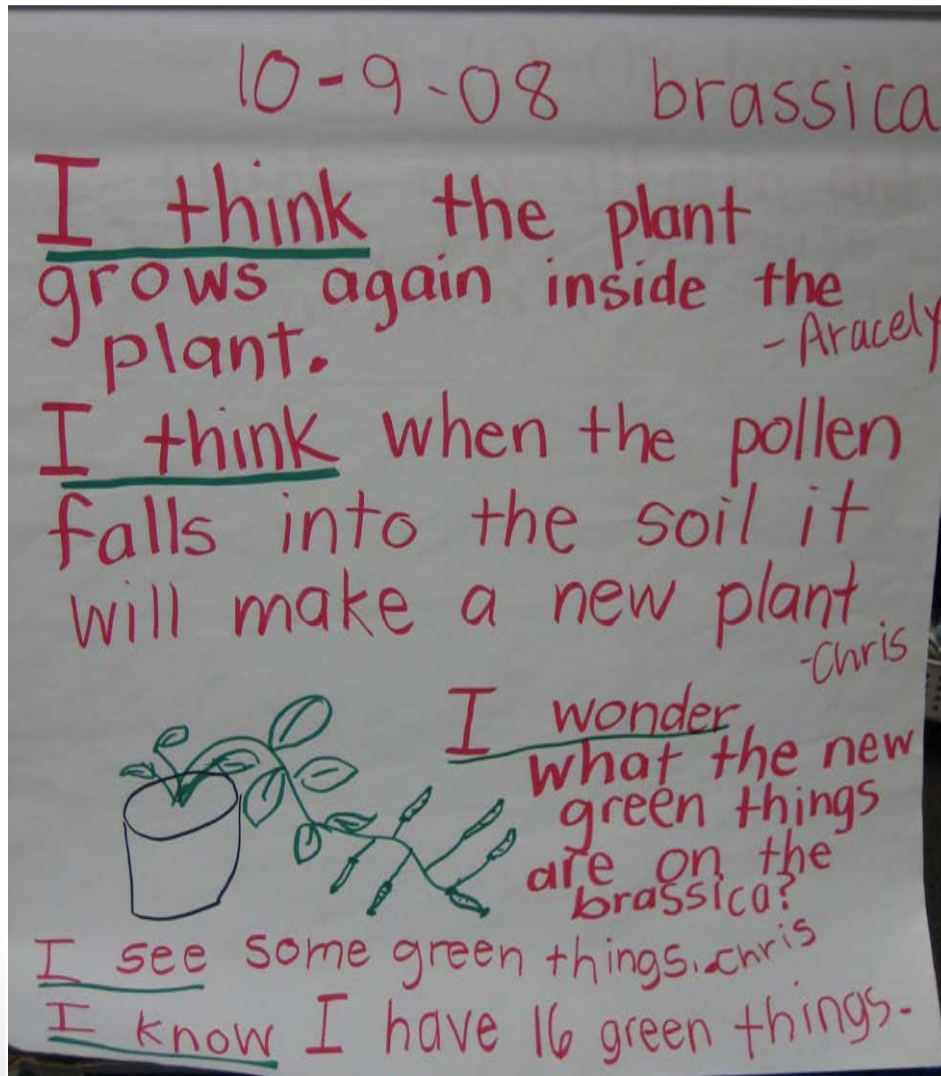 10-9-08 brassica
I think the plant
grows again inside the
plant.
-Aracely
I think when the pollen
falls into the soil it
will make a new plant
-Chris
I wonder
what the new
green things
are on the
brassica?
I see some green things. chris
I know I have 16 green things.